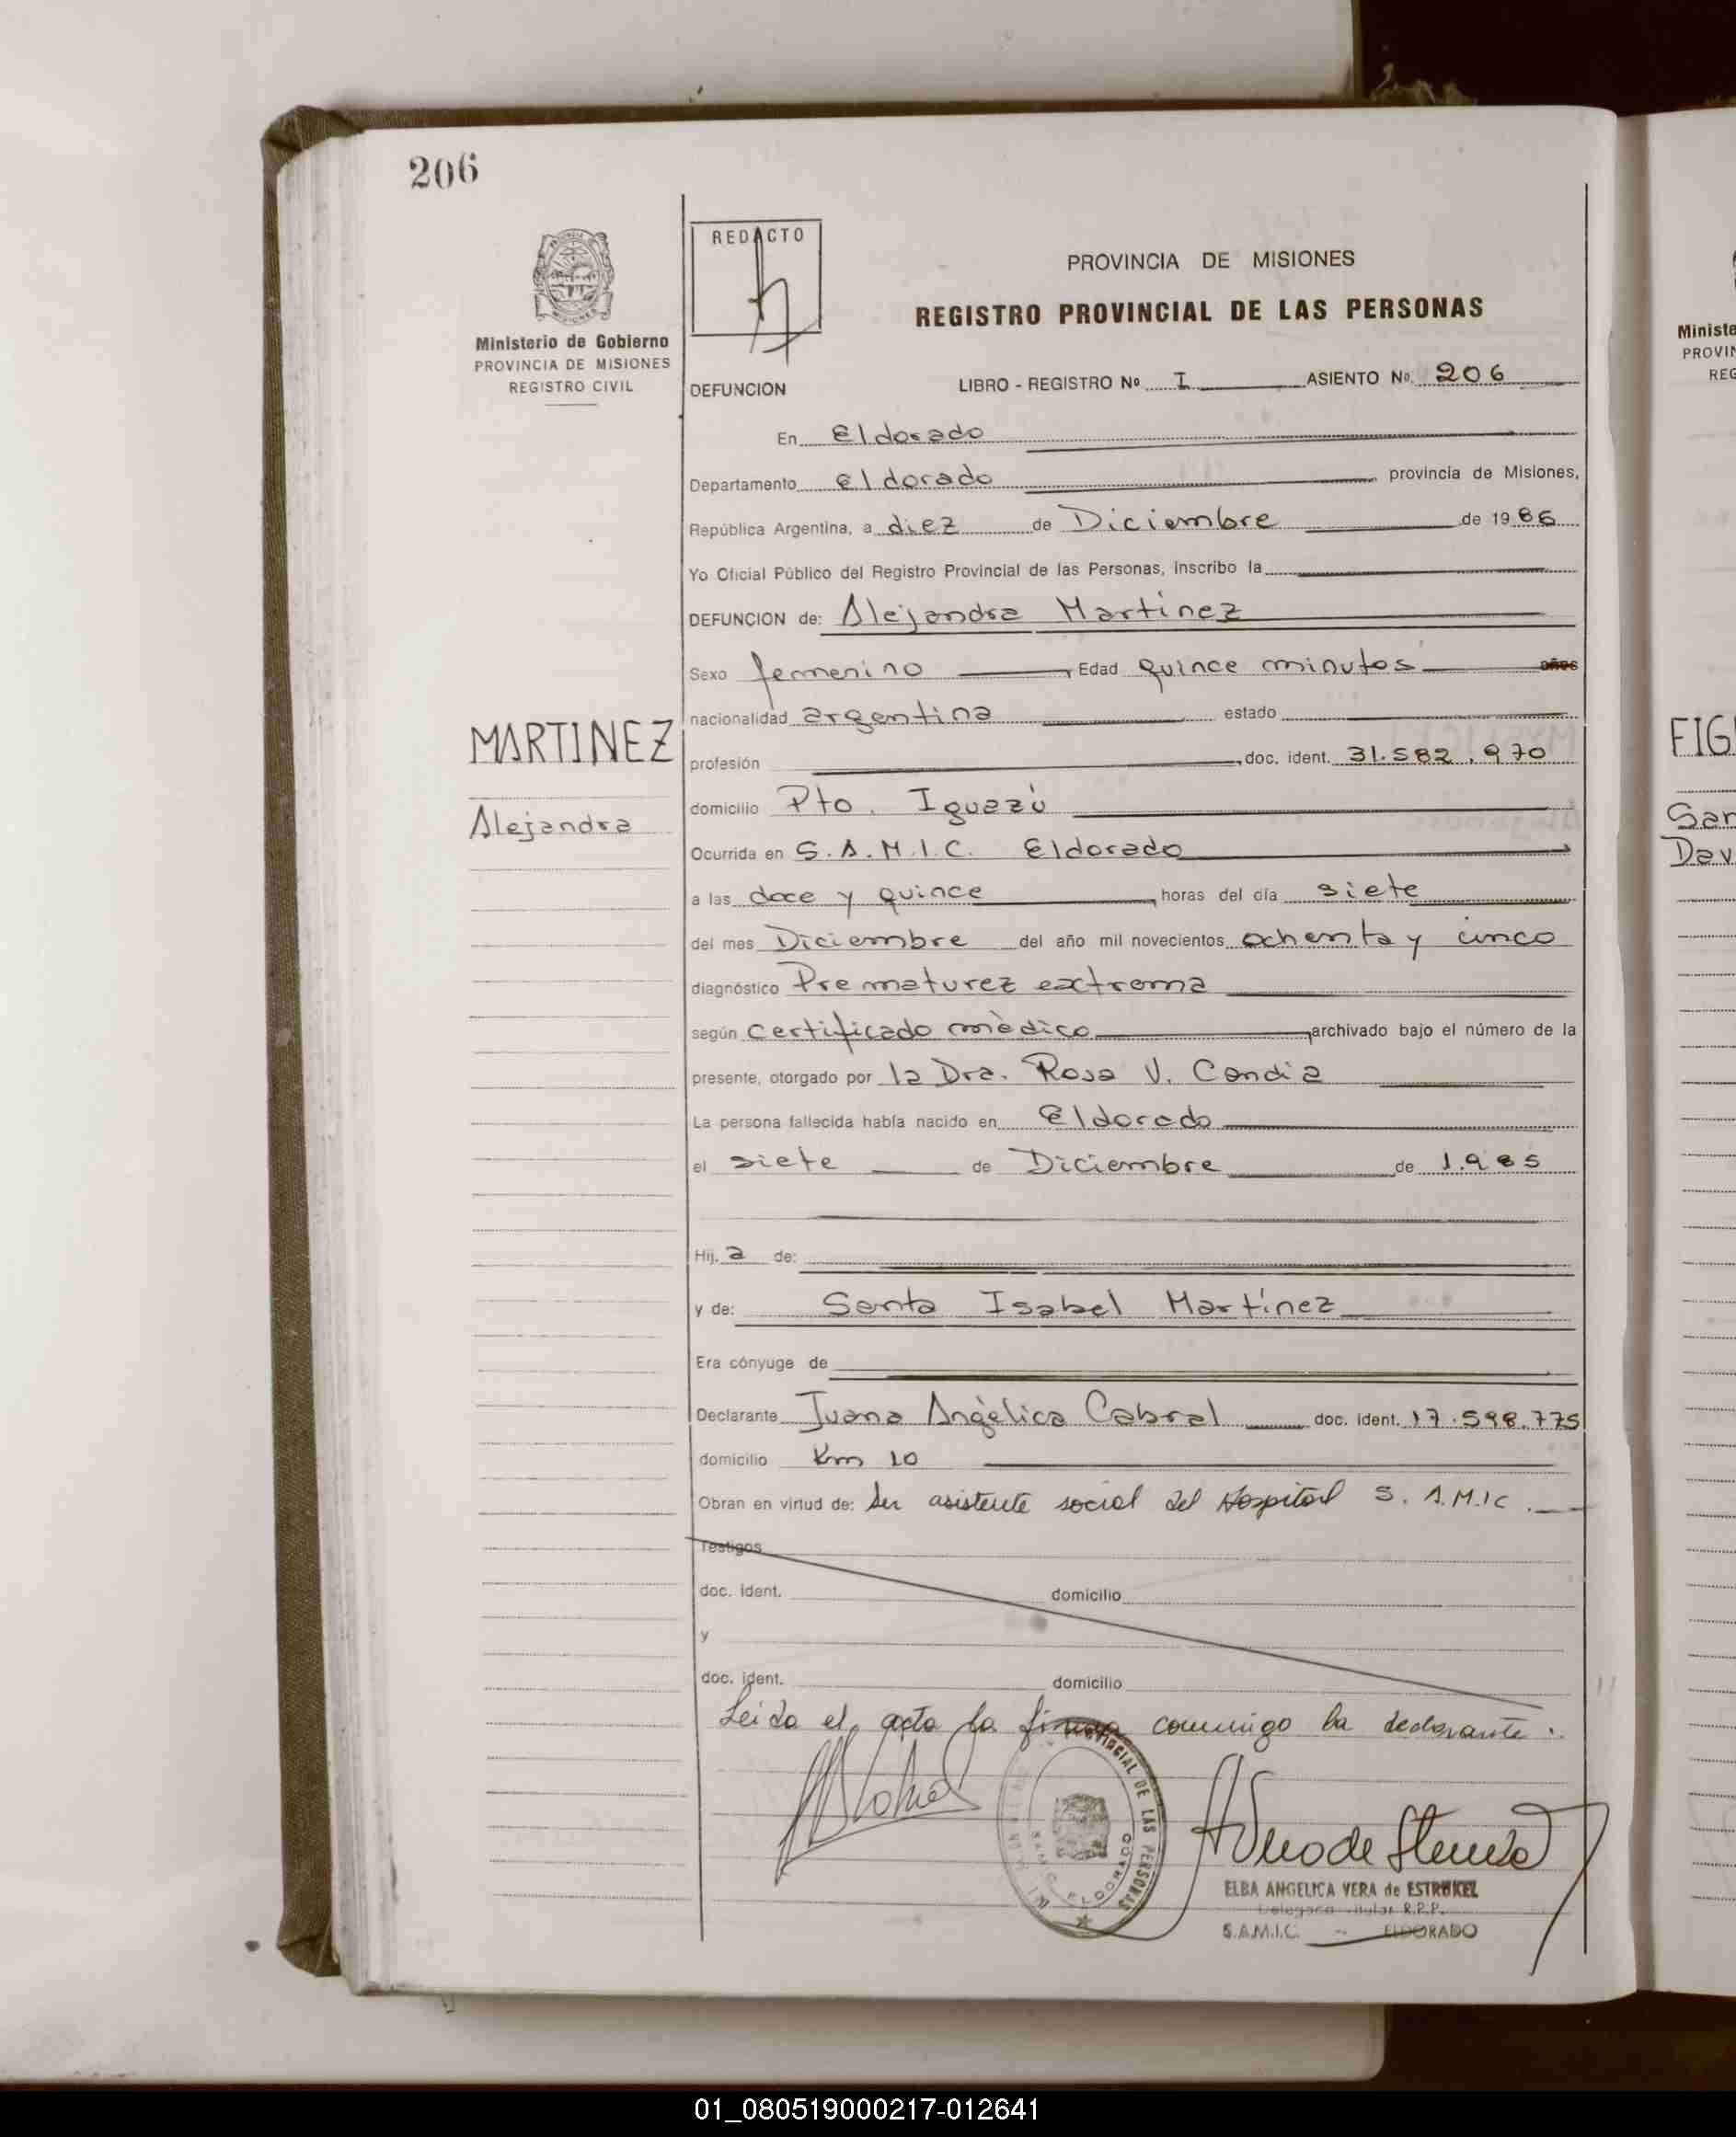 206
Ministerio de Gobierno
PROVINCIA DE MISIONES
REGISTRO CIVIL
REDACTO
PROVINCIA DE MISIONES
REGISTRO PROVINCIAL DE LAS PERSONAS
DEFUNCION LIBRO - REGISTRO Nº I ASIENTO Nº 206
En Eldorado
Departamento Eldorado provincia de Misiones,
República Argentina, a diez de Diciembre de 1986
Yo Oficial Público del Registro Provincial de las Personas, inscribo la
DEFUNCION de: Alejandra Martínez
Sexo femenino Edad quince minutos años
nacionalidad argentina estado
MARTINEZ
profesión doc. ident. 31.582.970
domicilio Pto. Iguazú
Alejandra
Ocurrida en S.A.M.I.C. Eldorado
a las doce y quince horas del día siete
del mes Diciembre del año mil novecientos ochenta y cinco
diagnóstico Prematurez extrema
según certificado mèdico archivado bajo el número de la
presente, otorgado por la Dra. Rosa V. Candia
La persona fallecida había nacido en Eldorado
el siete de Diciembre de 1.985
Hij a de:
y de: Santa Isabel Martínez
Era cónyuge de
Declarante Juana Angèlica Cabral doc. ident. 17.598.775
domicilio Km 10
Obran en virtud de: Ser asistente social del Hospital S.A.M.I.C.
Testigos
doc. ident. domicilio
y
doc. ident. domicilio
Leida el acta la firma conmigo la declarante.
PROVINCIAL DE LAS PERSONAS
S.A.M.I.C. ELDORADO
ELBA ANGELICA VERA de ESTRUKEL
Delegada Titular R.P.P.
S.A.M.I.C. - ELDORADO
Ministe
PROVIN
REG
FIG
San
Dav
01_080519000217-012641